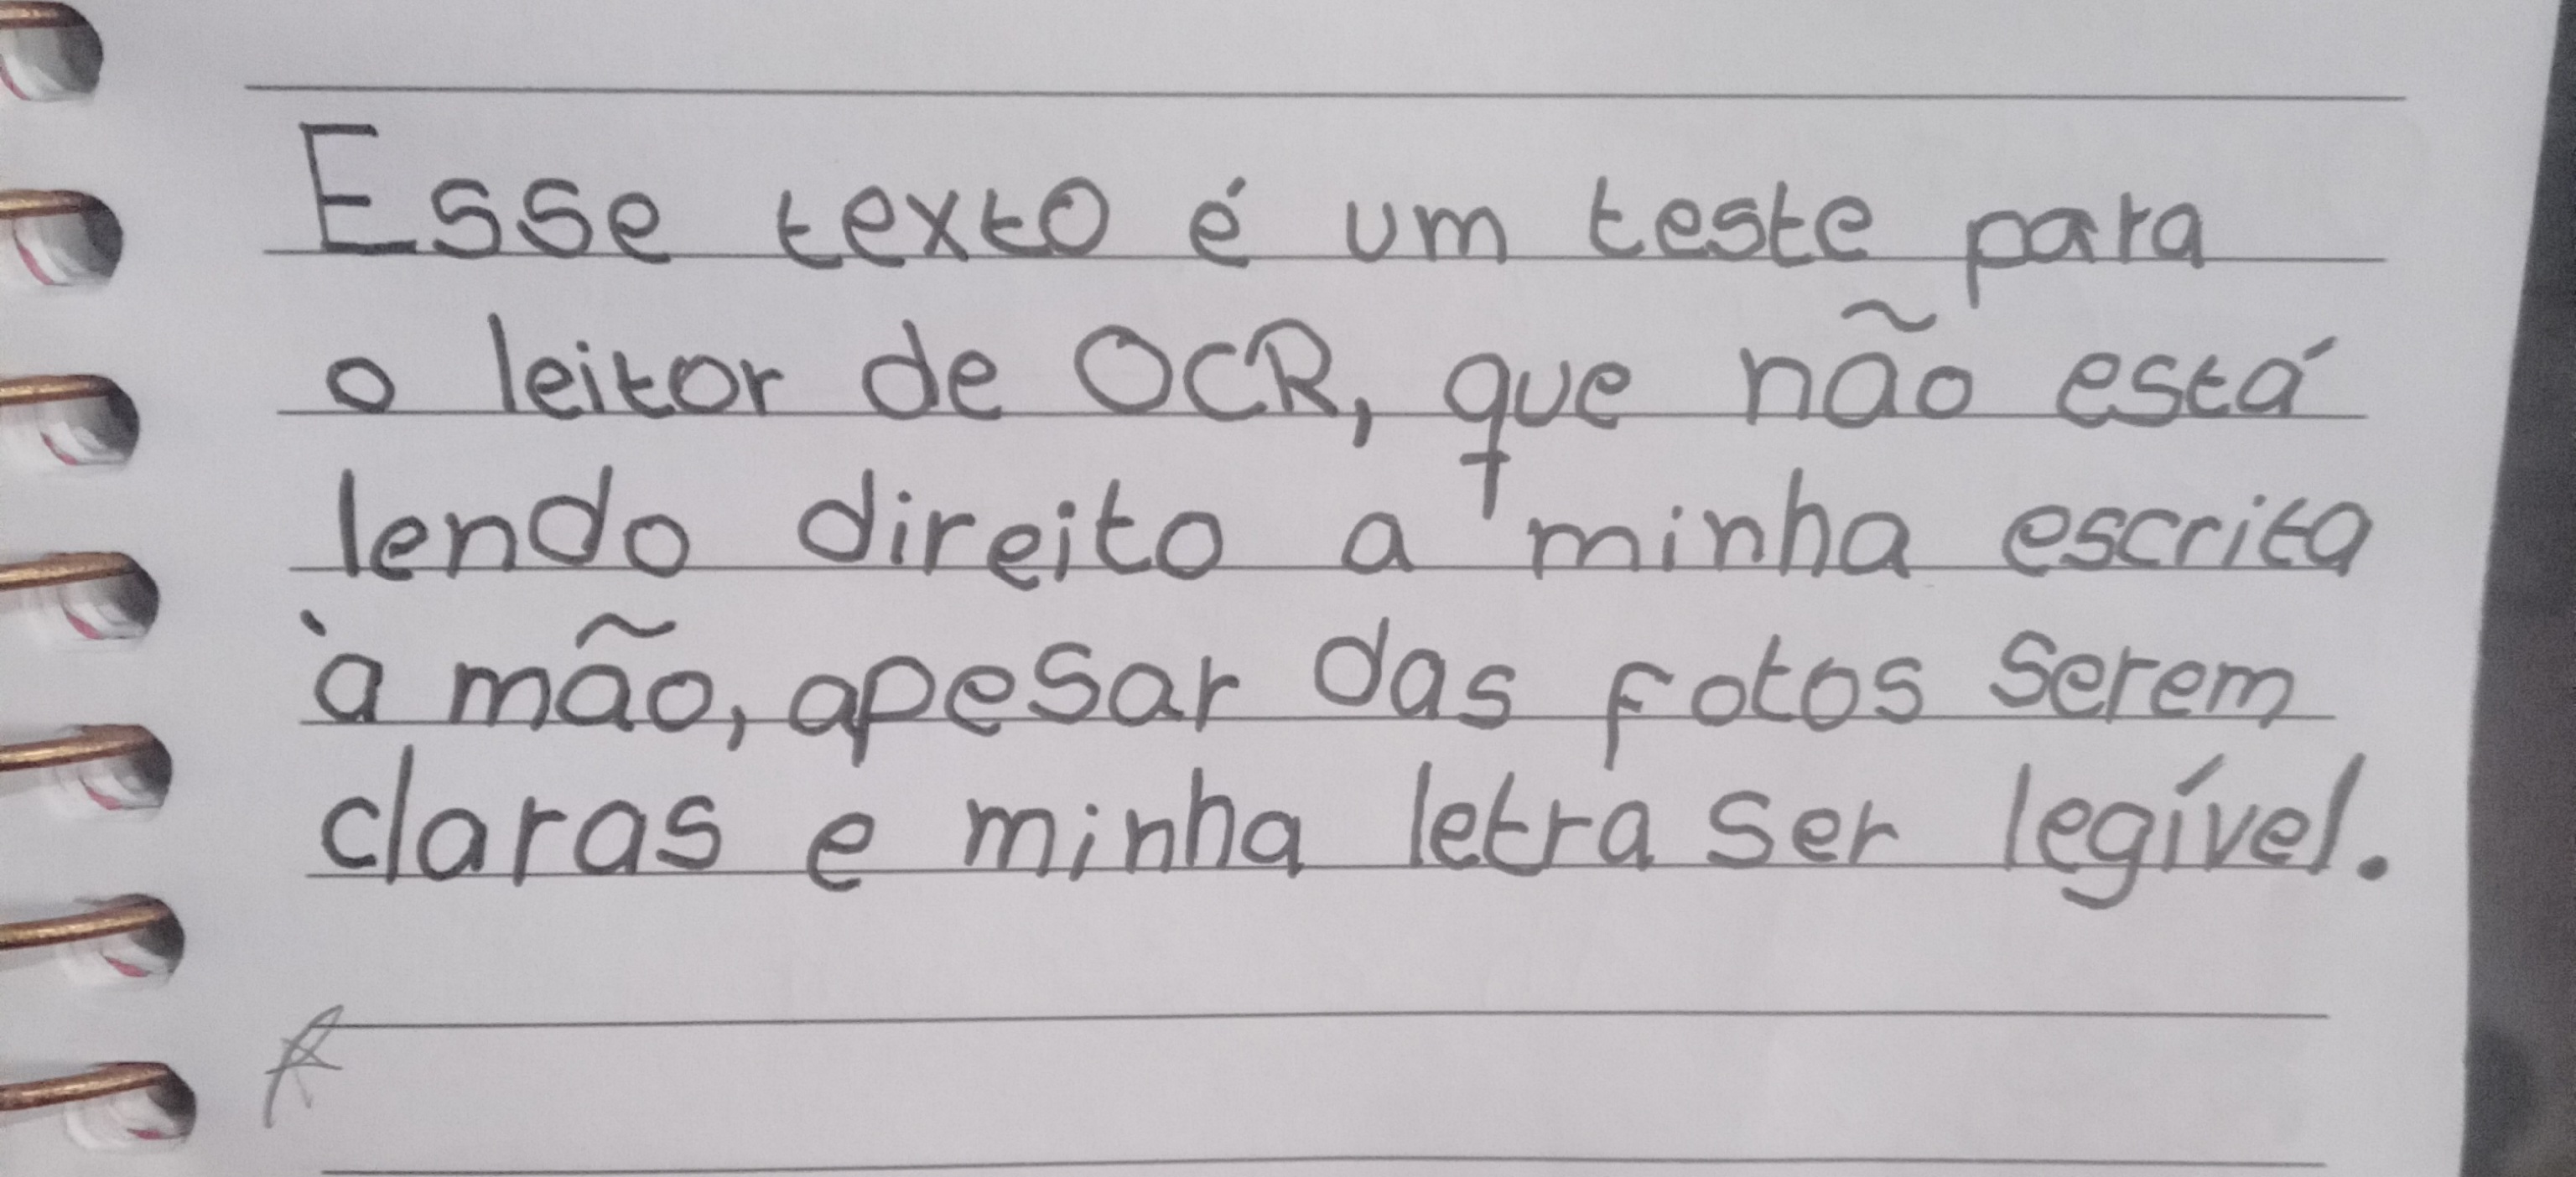 Esse texto é um teste para
o leitor de OCR, que não está
lendo direito a minha escrita
à mão, apesar das fotos serem
claras e minha letra ser legível.